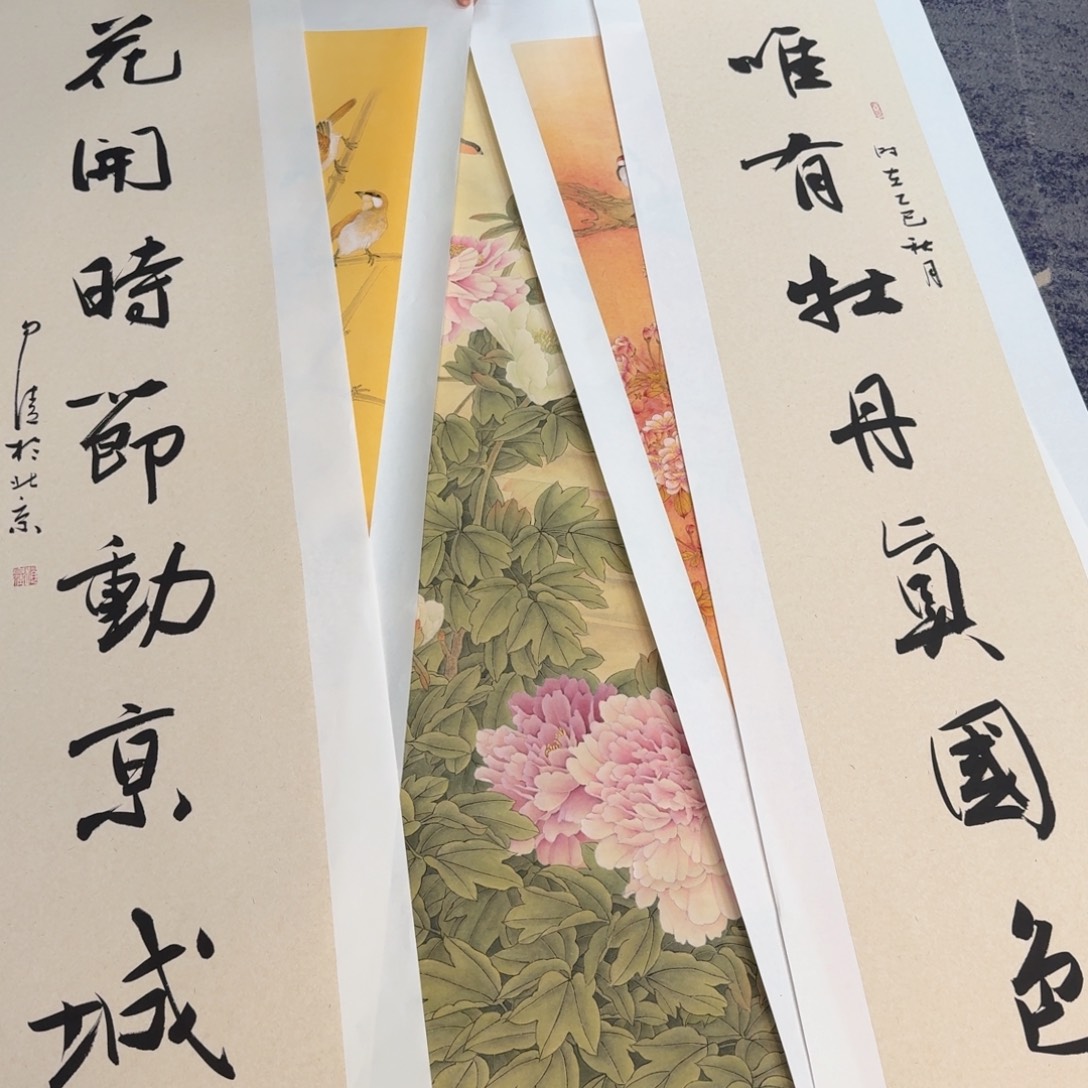 唯有牡丹真國色
时在乙巳秋月
花開時節動京城
清於北京